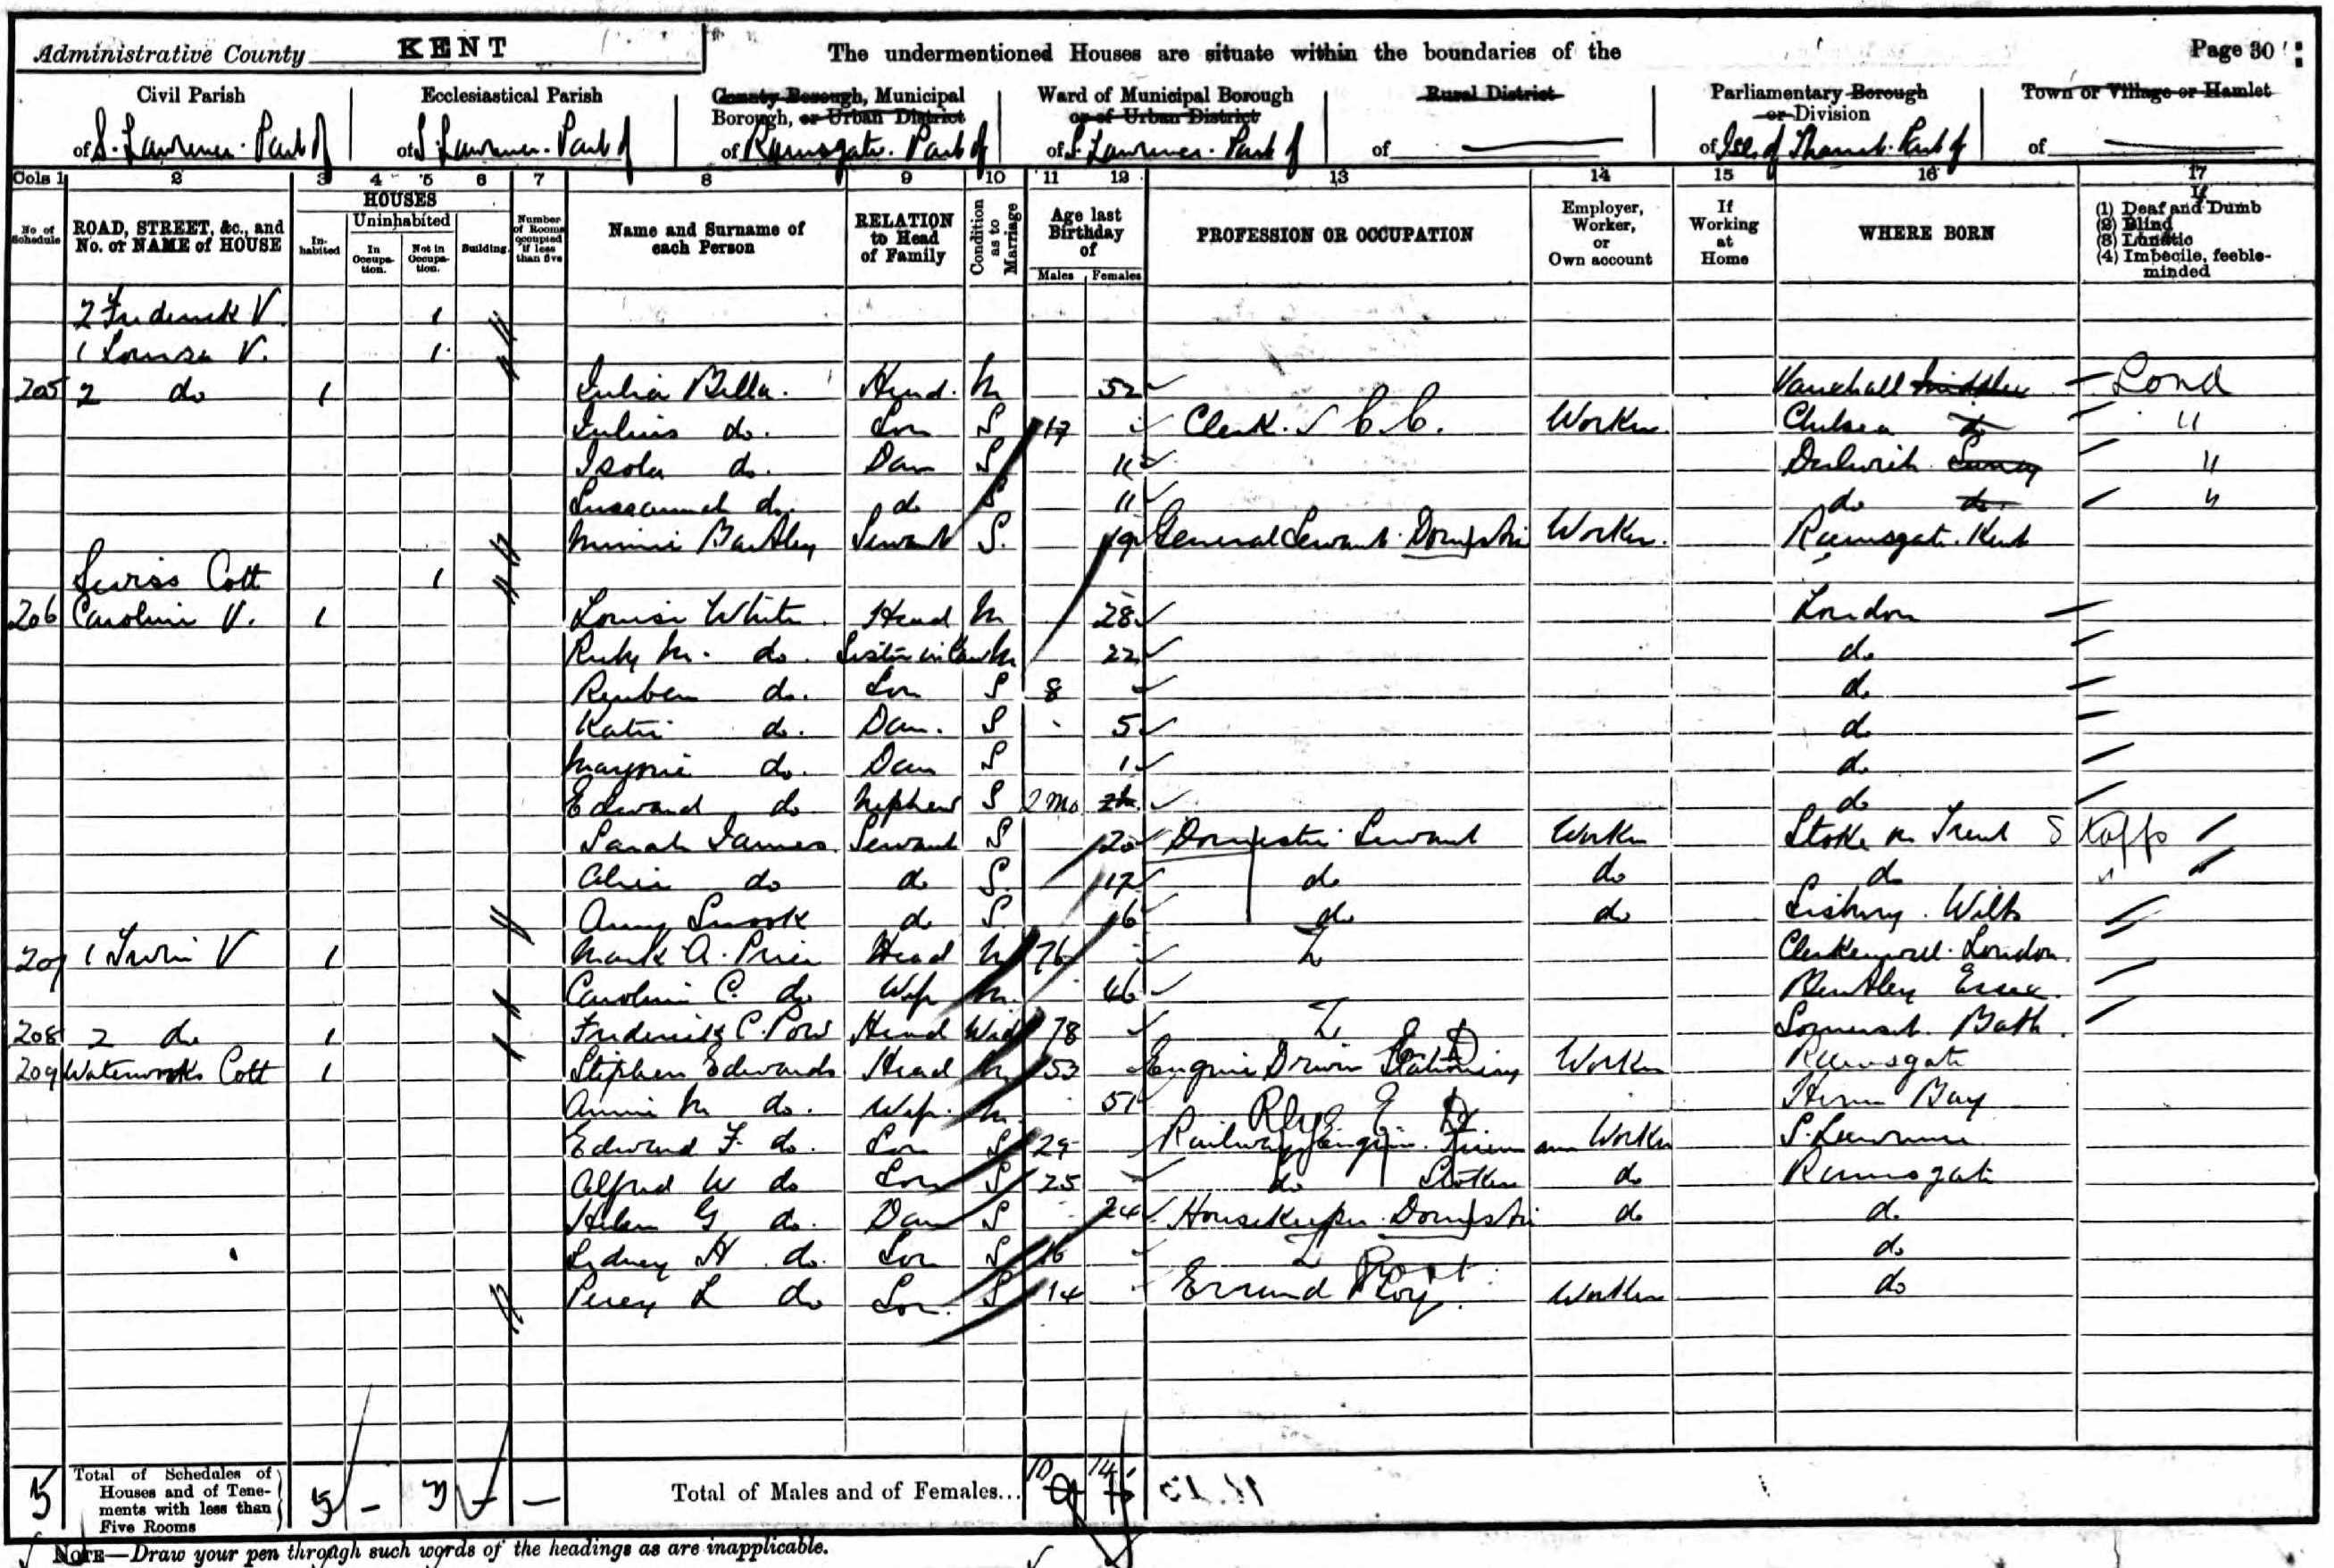 Administrative County KENT The undermentioned Houses are situate within the boundaries of the Page 30
Civil Parish Ecclesiastical Parish County Borough, Municipal Borough, or Urban District Ward of Municipal Borough or of Urban District Rural District Parliamentary Borough or Division Town or Village or Hamlet
of S. Lawrence Part of of S. Lawrence Part of of Ramsgate Part of of S. Lawrence Part of of of Isle of Thanet Part of of
Cols 1 2 3 4 5 6 7 8 9 10 11 12 13 14 15 16 17
No of Schedule
ROAD, STREET, &c., and No. or NAME of HOUSE
HOUSES
Inhabited
Uninhabited
In Occupation.
Not in Occupation.
Building
Number of Rooms occupied if less than five
Name and Surname of each Person
RELATION to Head of Family
Condition as to Marriage
Age last Birthday of
Males Females
PROFESSION OR OCCUPATION
Employer, Worker, or Own account
If Working at Home
WHERE BORN
If
(1) Deaf and Dumb
(2) Blind
(3) Lunatic
(4) Imbecile, feeble-minded
2 Frederick V. 1
1 Louisa V. 1
205 2 do 1 Julia Bella. Head. M 52 Vauxhall Middlesex Lond
Julius do. Son S 17 Clerk. C.C. Worker. Chelsea do "
Isola do. Dau S 11 Dulwich Surrey "
Sussannah do. do S 11 do do "
Minnie Bartley Servant S. 19 General Servant Domestic Worker. Ramsgate. Kent
Swiss Cott 1
206 Caroline V. 1 Louise White. Head M 28 London
Ruby M. do. Sister in Law M 22 do
Reuben do. Son S 8 do
Katie do. Dau. S 5 do
Marjorie do. Dau S 1 do
Edward do Nephew S 2 mo do
Sarah James Servant S 20 Domestic Servant Worker Stoke on Trent Staffs
Alice do do S. 17 do do do "
Amy Snook do S. 16 do do Tisbury. Wilts
207 1 V 1 Mark A. Price Head M 76 Clerkenwell. London.
Caroline C. do Wife M. 46 Bentley Essex.
208 2 do 1 Frederick C. Pow Head Wid 78 Somerset. Bath.
209 Waterworks Cott 1 Stephen Edwards Head M 53 Engine Driver Stationary E D Worker Ramsgate
Annie M do. Wife. M. 51 Herne Bay
Edward F. do. Son S 29 Railway Engine Fireman Rly E D Worker S. Lawrence
Alfred W do Son S 25 do Stoker do Ramsgate
Helen G do. Dau S 24 Housekeeper. Domestic do do
Sydney H. do. Son S 16 do
Percy L do Son. S 14 Errand Boy. Port Worker do
5 Total of Schedules of Houses and of Tenements with less than Five Rooms 5 – 3 – – Total of Males and of Females... 10 14
NOTE—Draw your pen through such words of the headings as are inapplicable.